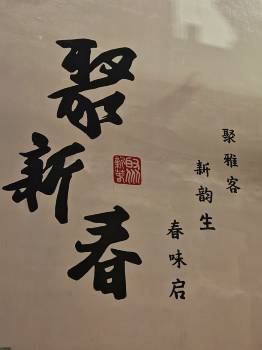 聚新春
聚雅客
新韵生
春味启